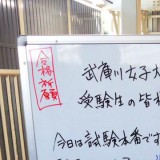 合格祈願
武庫川女子大
受験生の皆様
今日は試験本番です